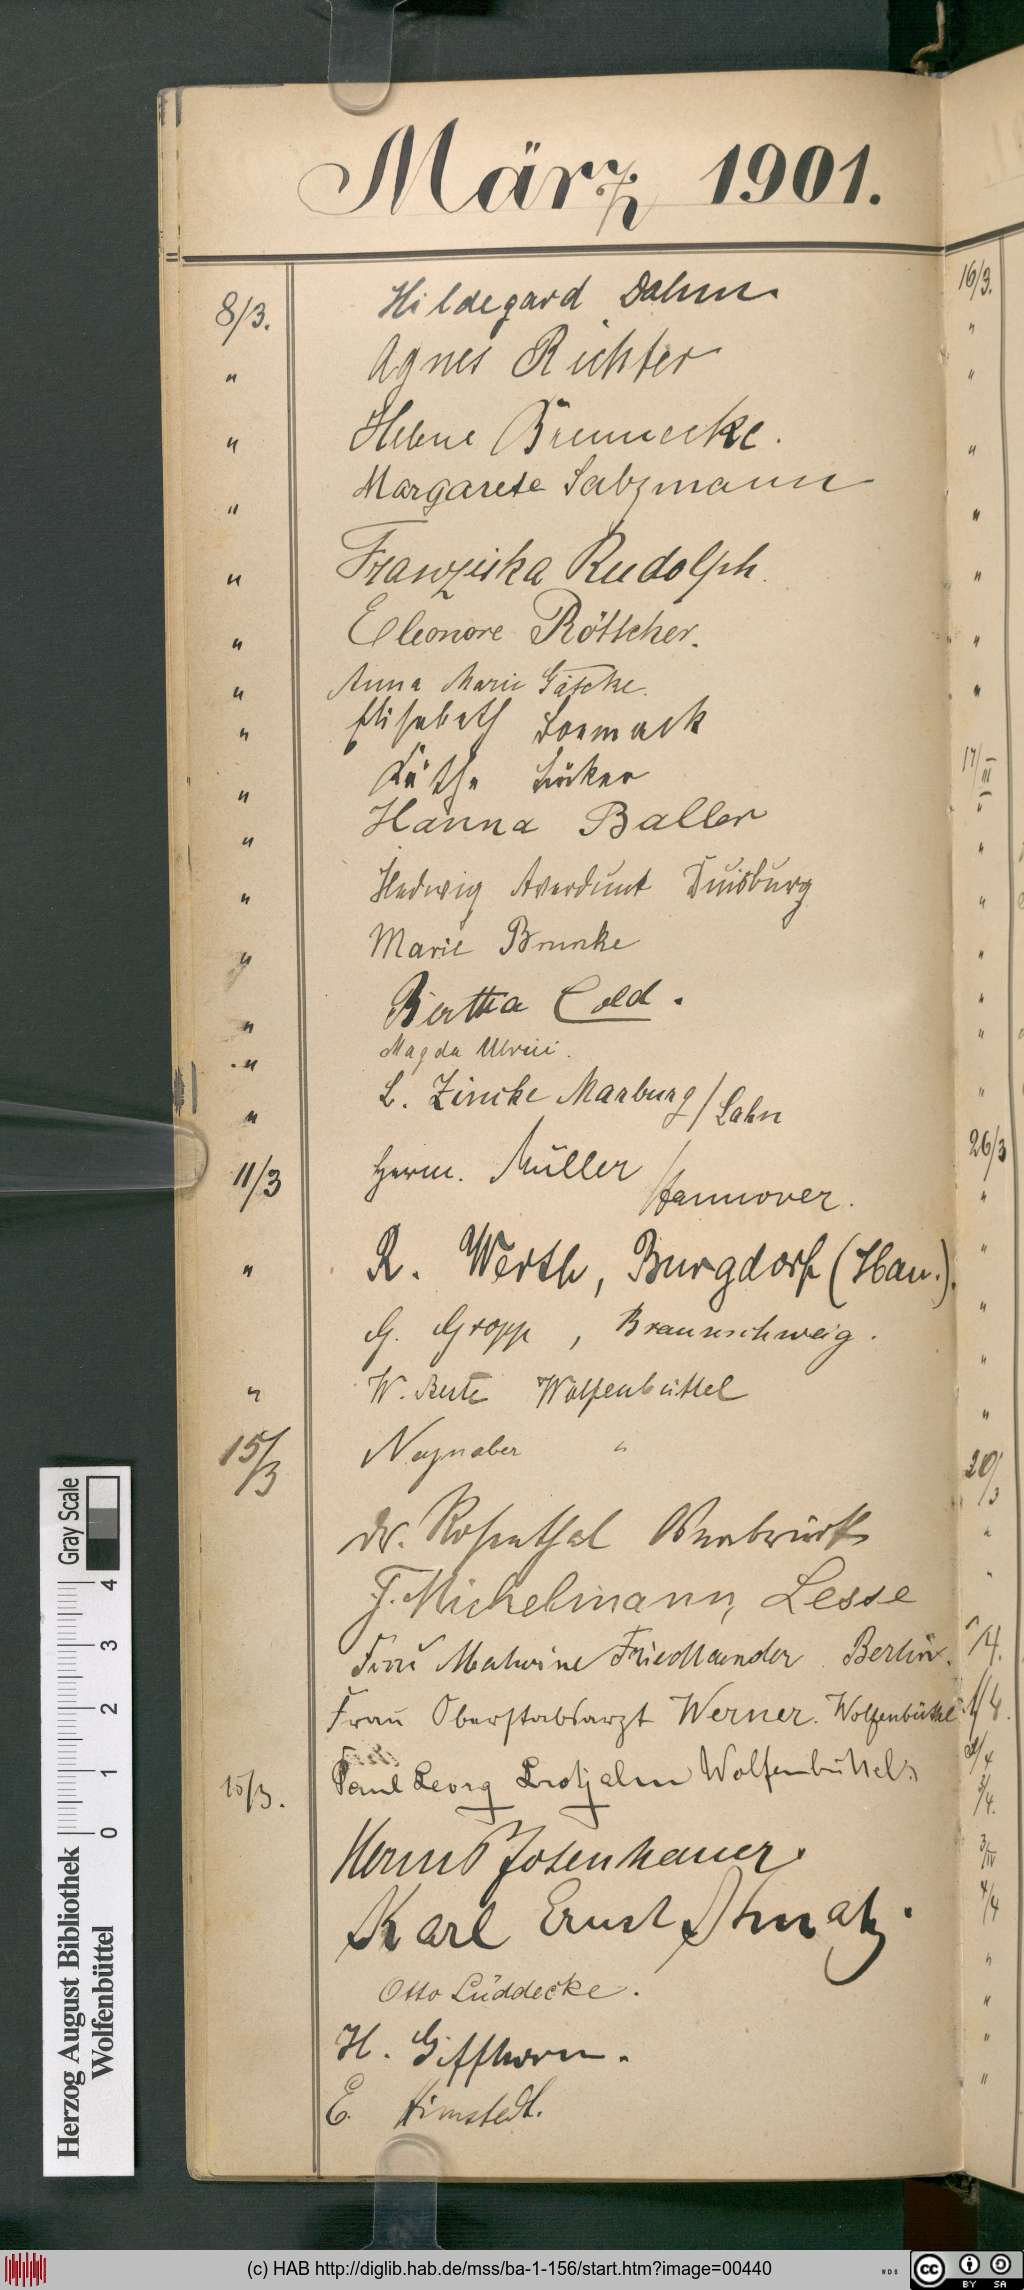 März 1901.
8/3. Hildegard Dahm
" Agnes Richter
" Helene Brennecke.
" Margarete Salzmann
" Franziska Rudolph.
" Eleonore Röttcher.
" Anna Marie
" Elisabeth
" Käthe Lüker
" Hanna Baller
" Hedwig Averdunk Duisburg
" Marie Brunke
" Bertha Cold.
" Magda Ulrici.
" L. Zincke Marburg/Lahn
11/3 Herm. Müller
Hannover.
" R. Werth, Burgdorf (Han.).
G. Gropp, Braunschweig.
" W. Wolfenbüttel
15/3 "
Dr. Rosenthal
F. Michelmann, Lesse
Frau Malwine Friedlaender Berlin.
Frau Oberstabsarzt Werner. Wolfenbüttel
15/3. Paul Georg Wolfenbüttel
Herm
Karl Ernst
Otto Lüddecke.
H. Giffhorn.
E. Himstedt.
16/3.
"
"
"
"
"
"
"
17/III
"
"
"
"
"
"
"
26/3
"
"
"
"
"
20/3
"
"
1/4.
1/4.
2/4
3/4.
3/IV
4/4
"
"
"
"
Herzog August Bibliothek
Wolfenbüttel
0 1 2 3 4
Gray Scale
(c) HAB http://diglib.hab.de/mss/ba-1-156/start.htm?image=00440
WDB
cc BY SA